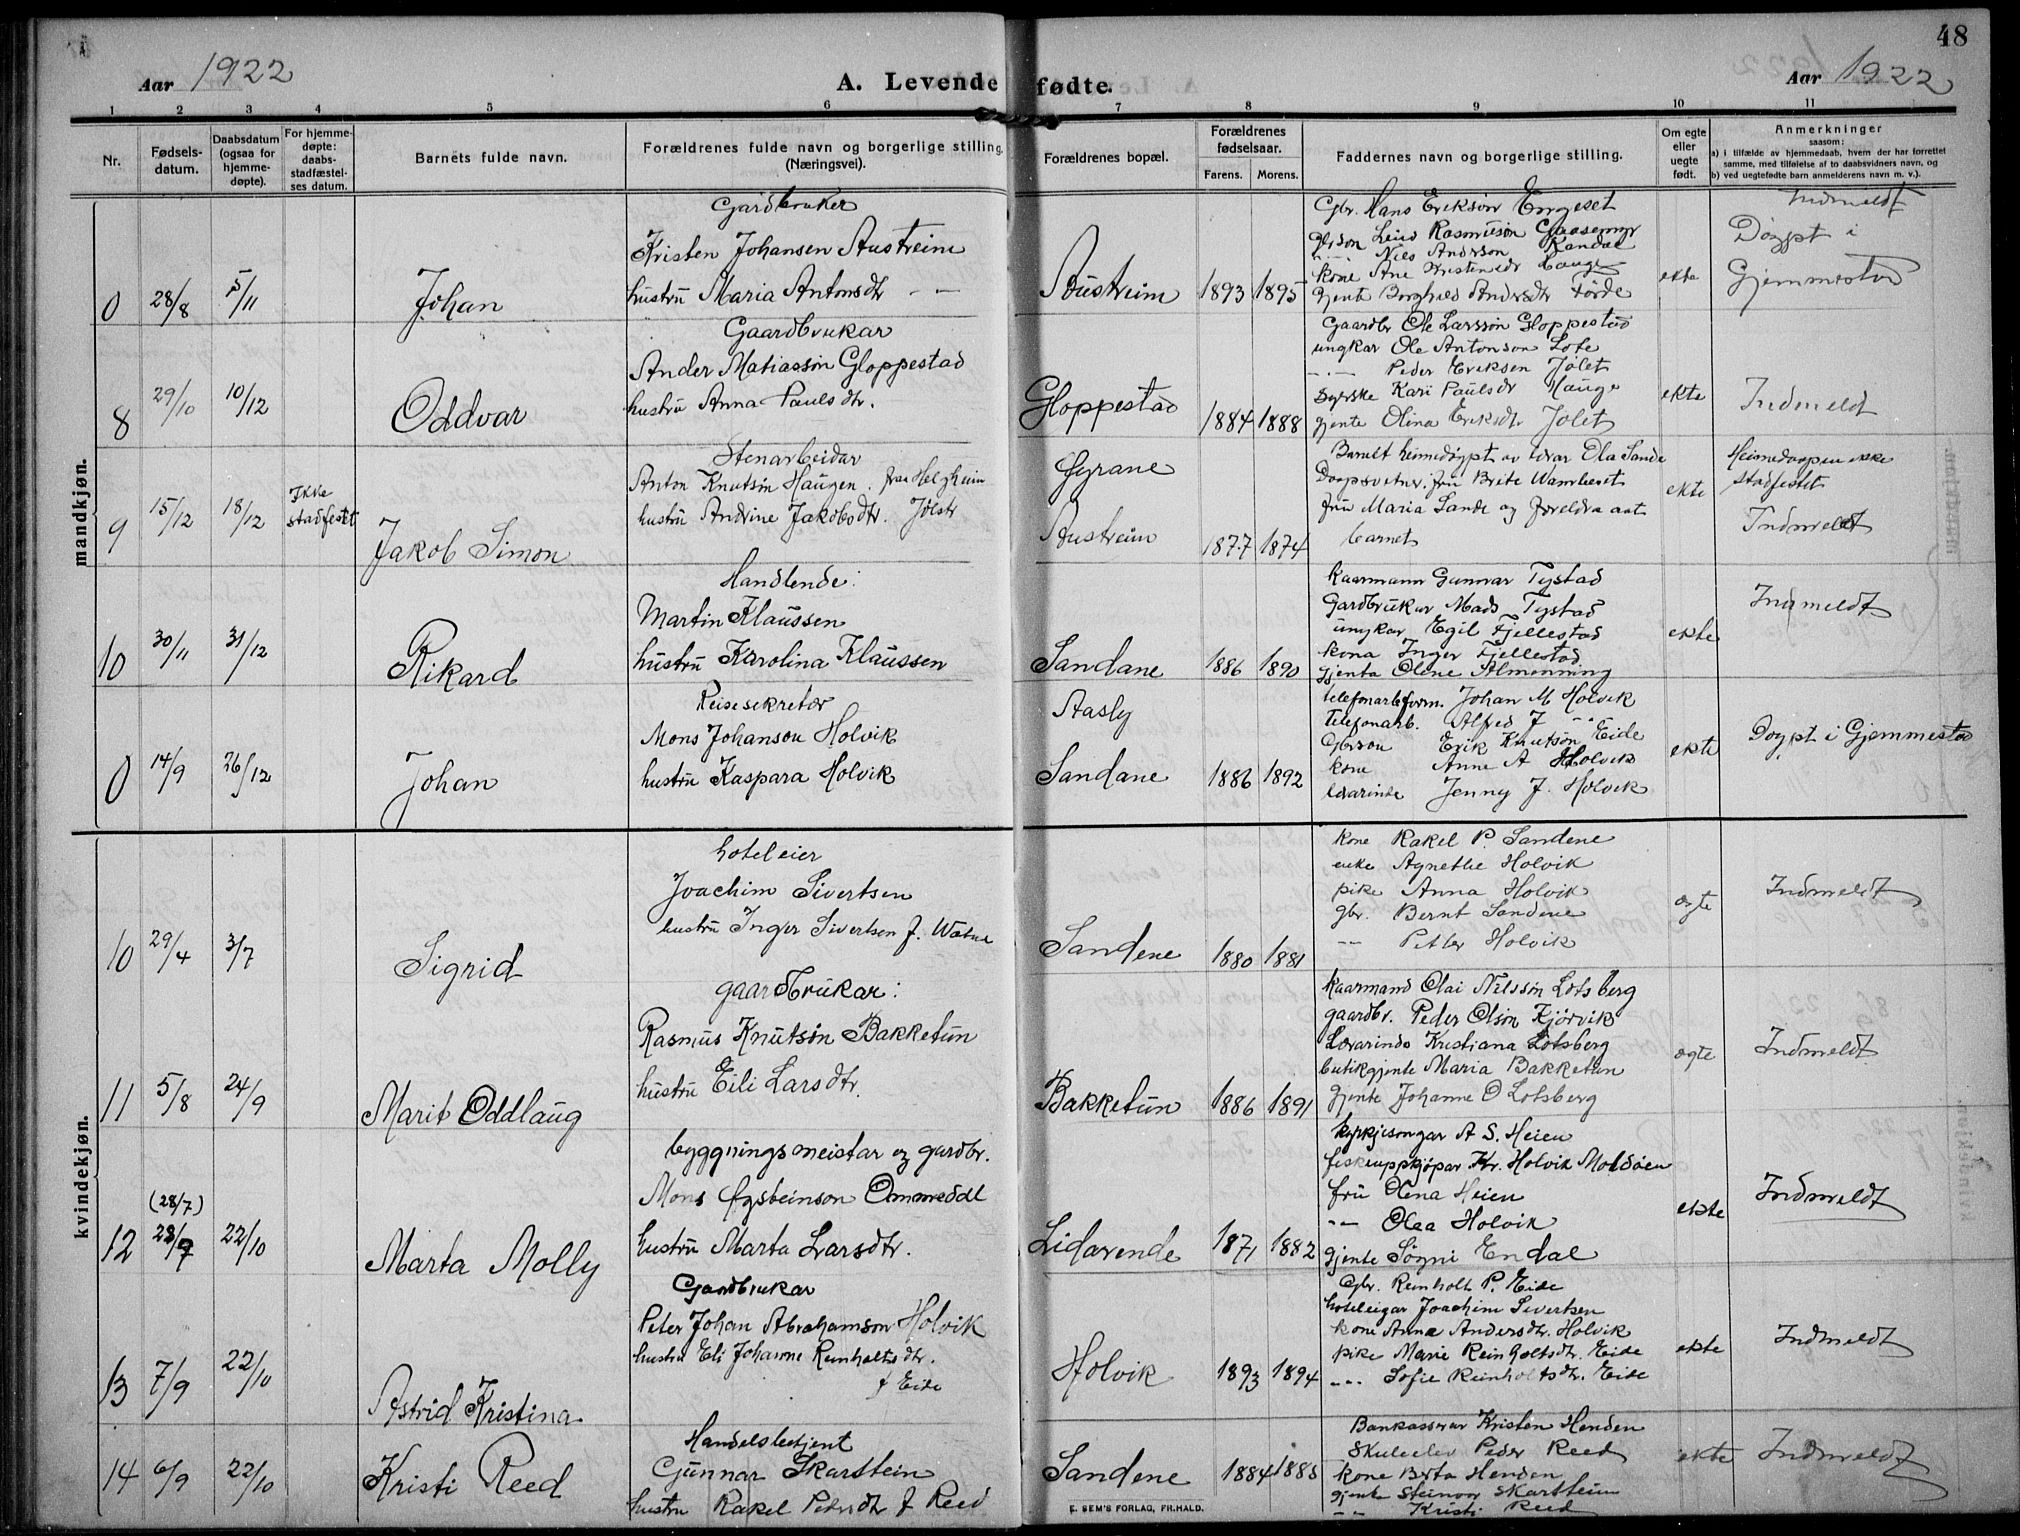 48
Aar 1922
A. Levende fødte.
Aar 1922
1 2 3 4 5 6 7 8 9 10 11
Nr.
Fødsels-
datum.
Daabsdatum
(ogsaa for
hjemme-
døpte).
For hjemme-
døpte:
daabs-
stadfæstel-
ses datum.
Barnets fulde navn.
Forældrenes fulde navn og borgerlige stilling.
(Næringsvei).
Forældrenes bopæl.
Forældrenes
fødselsaar.
Farens. Morens.
Faddernes navn og borgerlige stilling.
Om egte
eller
uegte
født.
Anmerkninger
saasom:
a) i tilfælde av hjemmedaab, hvem der har forrettet
samme, med tilføielse af to daabsvidners navn, og
b) ved uegtefødte barn anmelderens navn m. v.).
mandkjøn.
0 28/8 5/11
Johan
Gardbruker
Kristen Johansen Austreim
hustru Maria Antonsdtr — —
Austreim 1893 1895
Gbr. Hans Erikson Engeset
Gbrson Rasmusson Gaasemyr
Nils Anderson Kandal
kone Ane Kristensdr Hauge
gjente Borghild Andersdtr Førde
ekte
Indmeldt
Døypt i
Gjemmestad
8 29/10 10/12
Oddvar
Gaardbrukar
Ander Matiasson Gloppestad
hustru Anna Paulsdtr.
Gloppestad 1884 1888
Gaardbr Ole Larsson Gloppestad
ungkar Ole Antonson Lote
—"— Peder Eriksen Jølet
Syerske Kari Paulsdr Hauge
gjente Olina Eriksdtr Jølet
ekte
Indmeldt
9 15/12 18/12
Ikke
stadfestet
Jakob Simon
Stenarbeidar
Anton Knutson Haugen. fraa Helgheim
hustru Andrine Jakobsdtr. Jølstr
Gyrane
Austreim 1877 1874
Barnet heimedøypt av Ola Sande
Daapsvetner: fru Brite Wamberset
fru Maria Sande og foreldra aat
barnet
ekte
Heimedaapen ikke
stadfestet
Indmeldt
10 30/11 31/12
Rikard
Handlende:
Martin Klaussen
hustru Karolina Klaussen
Sandane 1886 1890
Kaarmann Gunnar Tystad
Gardbrukar Mads Tystad
ungkar Egil Fjellestad
kona Inger Fjellestad
gjenta Olene Almenning
ekte
Indmeldt
0 14/9 26/12
Johan
Reisesekretær
Mons Johanson Holvik
hustru Kaspara Holvik
Aasly
Sandane 1886 1892
telefonarbform. Johan M Holvik
Telefonarb. Alfred J —"—
Gbrson Erik Knutson Eide
kone Anne A Holvik
lærarinde Jenny J. Holvik
ekte
Døypt i Gjemmestad
kvindekjøn.
10 29/4 3/7
Sigrid
hoteleier
Joachim Sivertsen
hustru Inger Sivertsen f. Watne
Sandene 1880 1881
kone Rakel P. Sandene
enke Agnethe Holvik
pike Anna Holvik
gbr. Bernt Sandene
—"— Petter Holvik
ægte
Indmeldt
11 5/8 24/9
Marit Oddlaug
gaardbrukar:
Rasmus Knutson Bakketun
hustru Eili Larsdtr.
Bakketun 1886 1891
Kaarmand Olai Nilsson Lotsberg
gaardbr. Peder Olson Kjørvik
Lærarinde Kristiana Lotsberg
butikgjente Maria Bakketun
Gjente Johanne O Lotsberg
ægte
Indmeldt
12 (28/7)
28/7 22/10
Marta Molly
byggningsmeistar og gardbr.
Mons Øysteinson Ommedal
hustru Marta Larsdtr.
Lidarende 1871 1882
kyrkjesongar A S. Heien
fiskeuppkjøpar Kr. Holvik Moldøen
fru Olena Heien
—"— Olea Holvik
gjente Søgni Endal
ekte
Indmeldt
13 7/9 22/10
Astrid Kristina
Gardbrukar
Peter Johan Abrahamson Holvik
hustru Eli Johanne Reinholtsdtr.
f Eide
Holvik 1893 1894
Gbr. Reinholt P. Eide
hoteleigar Joachim Sivertsen
kone Anna Andersdtr. Holvik
pike Marie Reinholtsdtr. Eide
—"— Sofie Reinholtsdtr. Eide
ekte
Indmeldt
14 6/9 22/10
Kristi Reed
Handelsbetjent
Gunnar Skarstein
hustru Rakel Pedersdtr f Reed
Sandene 1884 1885
Bankasserar Kristen Henden
Skuleelev Peder Reed
kone Berta Henden
gjente Steinvor Skarstein
—"— Kristi Reed
ekte
Indmeldt
E. SEM'S FORLAG, FR.HALD.